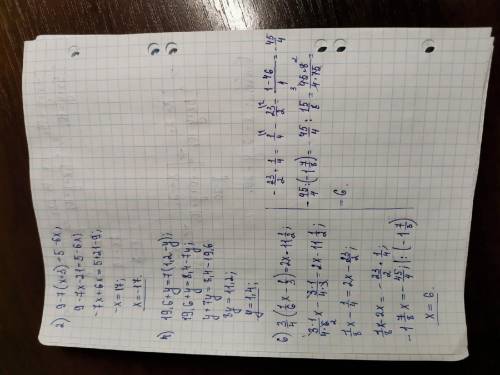 2) 9-7(x+3)=5-6x;
9-7x-21=5-6x;
-7x+6x=5+21-9;
-x=17;
x=-17.
4) 19,6+y=7(1,2-y);
19,6+y=8,4-7y;
y+7y=8,4-19,6
8y=-11,2;
y=-1,4;
6) 3/4(1/6x-1/3)=2x-11 1/2;
3·1/4·6 x-3·1/4·3=2x-11 1/2;
1/8x-1/4=2x-23/2;
1/8x-2x=-23/2+1/4;
-1 7/8x=-45/4; |:(-1 7/8)
x=6.
-23/2+1/4=1/4-23/2=1-46/4=-45/4
-45/4:(-1 7/8)=-45/4:15/8=45·8/4·15=
=6.